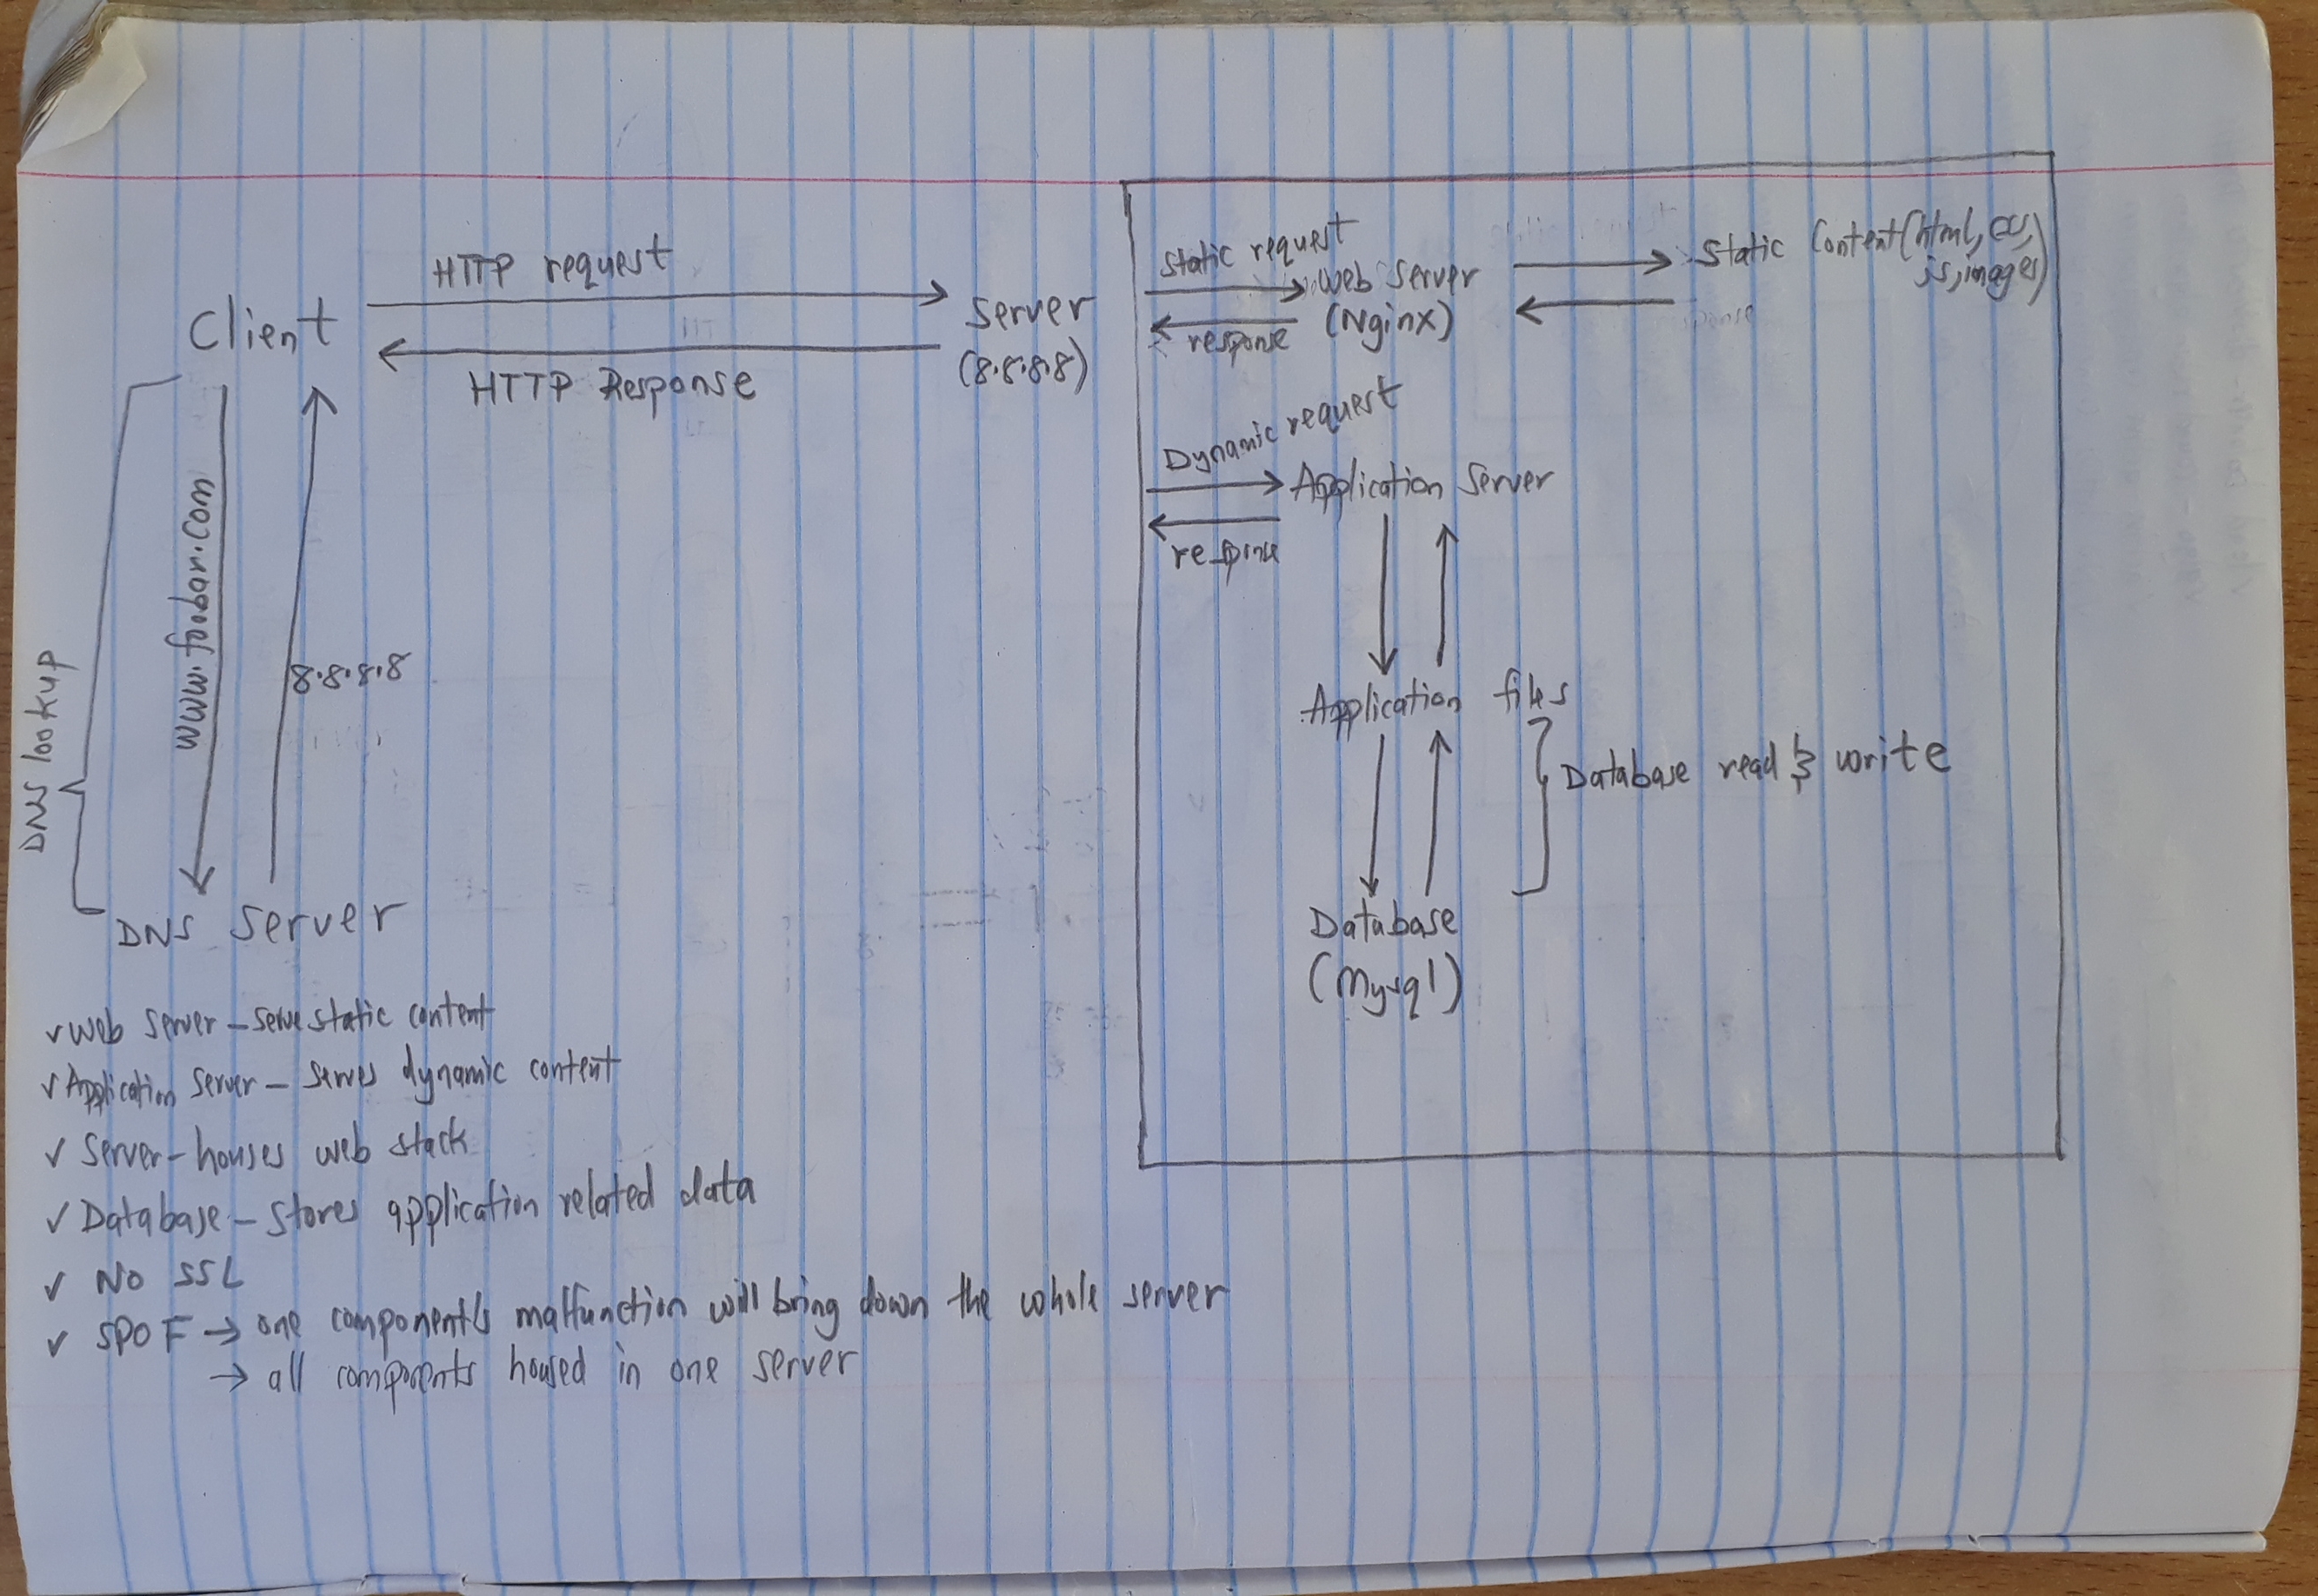 HTTP request
Client
Server
(8.8.8.8)
HTTP Response
DNS lookup
www.foobar.com
8.8.8.8
DNS Server
Static request
Web Server
(Nginx)
response
Static Content (html, css,
js, images)
Dynamic request
Application Server
response
Application files
Database read & write
Database
(Mysql)
✓ Web Server – serve static content
✓ Application Server – serves dynamic content
✓ Server – houses web stack
✓ Database – stores application related data
✓ No SSL
✓ SPOF → one component's malfunction will bring down the whole server
→ all components housed in one server